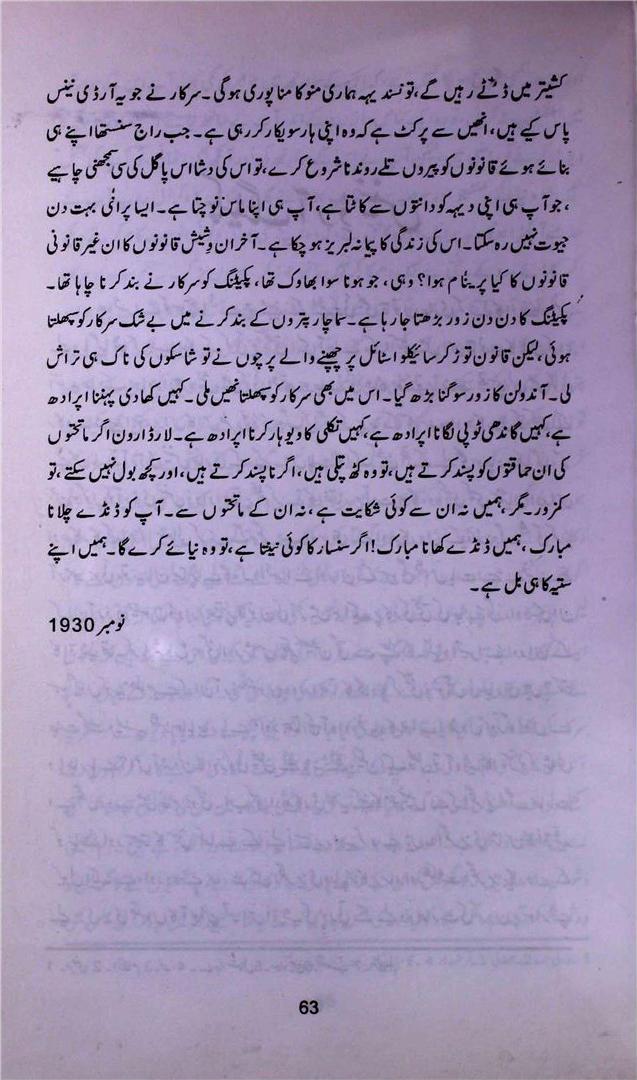 کشیتر میں ڈٹے رہیں گے، تو نسندیہہ ہماری منو کامنا پوری ہوگی۔ سرکار نے جو یہ آرڈی نینس
پاس کیے ہیں، انھیں سے پرکٹ ہے کہ وہ اپنی ہار سویکار کر رہی ہے۔ جب راج سنستھا اپنے ہی
بنائے ہوئے قانونوں کو پیروں تلے روندنا شروع کرے، تو اس کی دشا اس پاگل کی سی سمجھنی چاہیے
، جو آپ ہی اپنی دیہہ کو دانتوں سے کاٹتا ہے، آپ ہی اپنا ماس نوچتا ہے۔ ایسا پرانی بہت دن
جیوت نہیں رہ سکتا۔ اس کی زندگی کا پیمانہ لبریز ہو چکا ہے۔ آخر ان وشیش قانونوں کا ان غیر قانونی
قانونوں کا کیا پرینام ہوا؟ وہی، جو ہونا سوابھاوک تھا، پکیٹنگ کو سرکار نے بند کرنا چاہا تھا۔
پکیٹنگ کا دن دن زور بڑھتا جا رہا ہے۔ سماچار پتروں کے بند کرنے میں بے شک سرکار کو پھلتا
ہوئی، لیکن قانون توڑ کر سائیکلو اسٹائل پر چھپنے والے پرچوں نے تو شاسکوں کی ناک ہی تراش
لی۔ آندولن کا زور سو گنا بڑھ گیا۔ اس میں بھی سرکار کو پھلتا نھیں ملی۔ کہیں کھادی پہننا اپرادھ
ہے، کہیں گاندھی ٹوپی لگانا اپرادھ ہے، کہیں تکلی کا ویوہار کرنا اپرادھ ہے۔ لارڈ ارون اگر ماتختوں
کی ان حماقتوں کو پسند کرتے ہیں، تو وہ کٹھ پتلی ہیں، اگر ناپسند کرتے ہیں، اور کچھ بول نہیں سکتے، تو
کمزور۔ مگر، ہمیں نہ ان سے کوئی شکایت ہے، نہ ان کے ماتختوں سے۔ آپ کو ڈنڈے چلانا
مبارک، ہمیں ڈنڈے کھانا مبارک! اگر سنسار کا کوئی نینتا ہے، تو وہ نیائے کرے گا۔ ہمیں اپنے
ستیہ کا ہی بل ہے۔
نومبر 1930
63